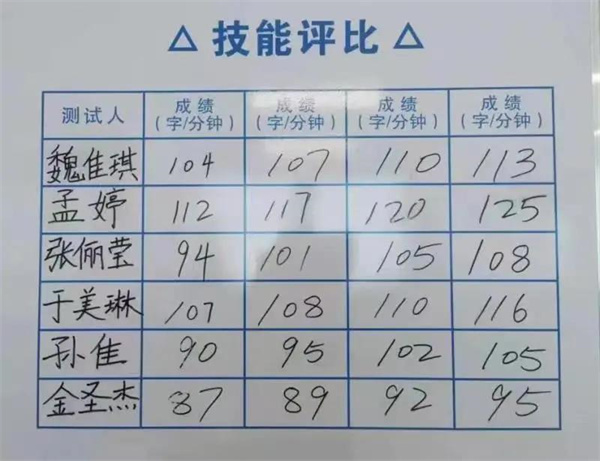 △ 技能评比 △
测试人 成绩（字/分钟） 成绩（字/分钟） 成绩（字/分钟） 成绩（字/分钟）
魏佳琪 104 107 110 113
孟婷 112 117 120 125
张俪莹 94 101 105 108
于美琳 107 108 110 116
孙佳 90 95 102 105
金圣杰 87 89 92 95